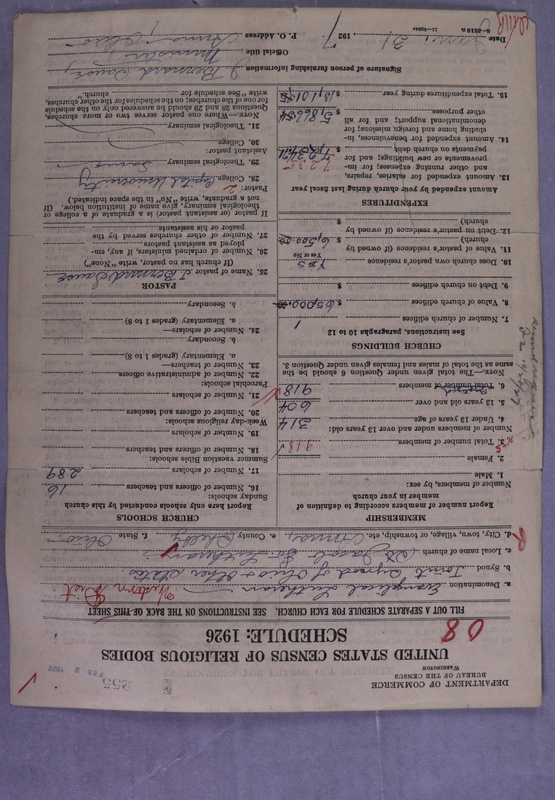 DEPARTMENT OF COMMERCE
BUREAU OF THE CENSUS
WASHINGTON
255
FEB 2 1927
UNITED STATES CENSUS OF RELIGIOUS BODIES
SCHEDULE: 1926
08
FILL OUT A SEPARATE SCHEDULE FOR EACH CHURCH. SEE INSTRUCTIONS ON THE BACK OF THIS SHEET
a. Denomination Evangelical Lutheran Western Dist.
b. Synod Joint Synod of Ohio & Other States
c. Local name of church St Jacob Ev Lutheran
d. City, town, village, or township, etc. Anna, e. County Shelby f. State Ohio
MEMBERSHIP
Report number of members according to definition of member in your church
Number of members, by sex:
1. Male
2. Female
3. Total number of members. 918
Number of members under and over 13 years old:
4. Under 13 years of age. 314
5. 13 years old and over 604
6. Total number of members 918
NOTE.—The total given under Question 6 should be the same as the total of males and females given under Question 3.
CHURCH BUILDINGS
See instructions, paragraphs 10 to 12
7. Number of church edifices 1
8. Value of church edifices $ 65,000.00
9. Debt on church edifices $
10. Does church own pastor's residence Yes
Yes or No
11. Value of pastor's residence (if owned by church) $ 6,500.00
12. Debt on pastor's residence (if owned by church) $
EXPENDITURES
Amount expended by your church during last fiscal year
13. Amount expended for salaries, repairs, and other running expenses; for improvements or new buildings; and for payments on church debt, $
14. Amount expended for benevolence, including home and foreign missions; for denominational support; and for all other purposes $ 5,866.54
15. Total expenditures during year $
CHURCH SCHOOLS
Report here only schools conducted by this church
Sunday schools:
16. Number of officers and teachers 16
17. Number of scholars 289
Summer vacation Bible schools:
18. Number of officers and teachers
19. Number of scholars
Week-day religious schools:
20. Number of officers and teachers
21. Number of scholars
Parochial schools:
22. Number of administrative officers
23. Number of teachers—
a. Elementary (grades 1 to 8)
b. Secondary
24. Number of scholars—
a. Elementary (grades 1 to 8)
b. Secondary
PASTOR
25. Name of pastor J Bernard Sauer
(If church has no pastor, write "None")
26. Number of ordained ministers, if any, employed as assistant pastors
27. Number of other churches served by the pastor or his assistants.
If pastor (or assistant pastor) is a graduate of a college or theological seminary, give name of institution below. (If not a graduate, write "No" in the space indicated.)
Pastor:
28. College. Capital University
29. Theological seminary. Same
Assistant pastor:
30. College.
31. Theological seminary.
NOTE.—Where one pastor serves two or more churches, Questions 28 and 29 should be answered only on the schedule for one of the churches; on the schedules for the other churches, write "See schedule for church."
Signature of person furnishing information J Bernard Sauer
Official title Minister
P. O. Address Anna, Ohio
Date Jany, 31 1927